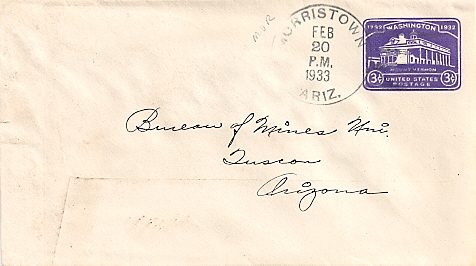 MOR
MORRISTOWN
FEB
20
P.M.
1933
ARIZ.
1732 WASHINGTON 1932
MOUNT VERNON
3¢ UNITED STATES 3¢
POSTAGE
Bureau of Mines Uni.
Tuscon
Arizona